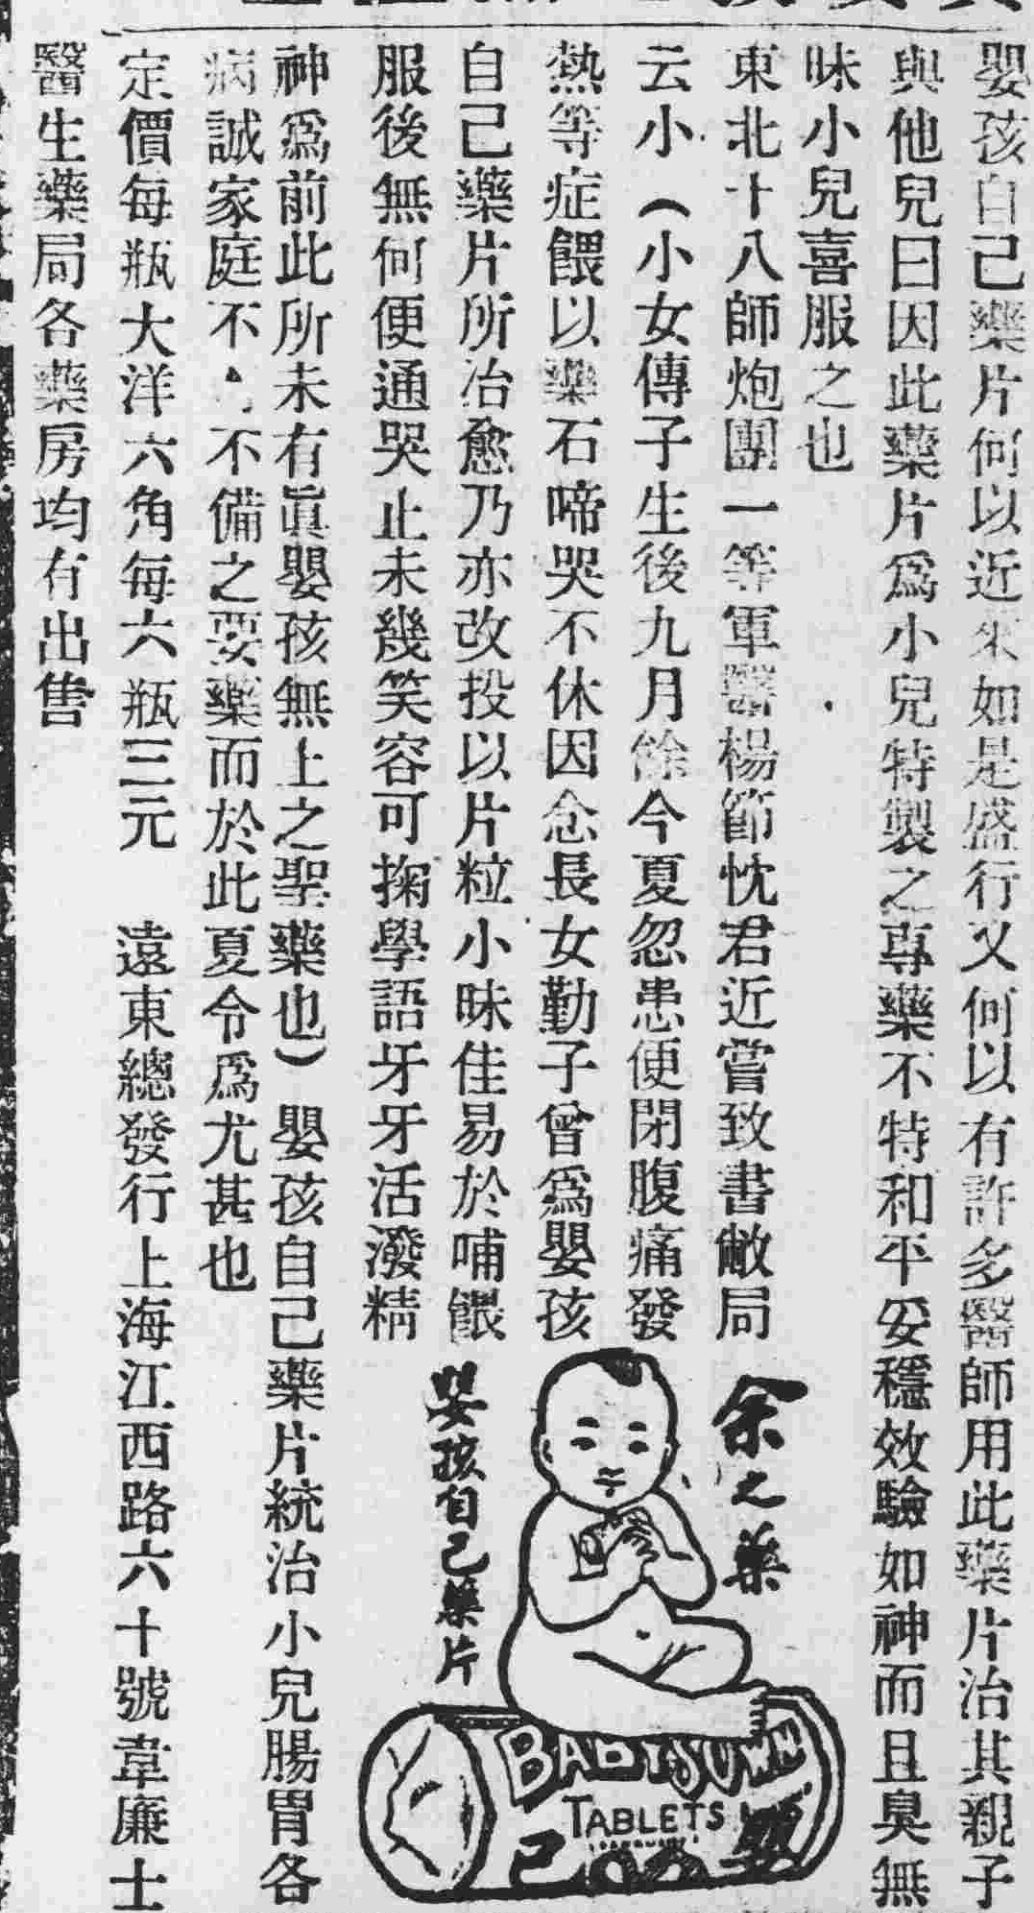 嬰孩自己藥片何以近來如是盛行又何以有許多醫師用此藥片治其親子
與他兒曰因此藥片爲小兒特製之專藥不特和平妥穩效驗如神而且臭無
味小兒喜服之也
東北十八師炮團一等軍醫楊節忱君近嘗致書敝局
云小（小女傳子生後九月餘今夏忽患便閉腹痛發
熱等症餵以藥石啼哭不休因念長女勤子曾爲嬰孩
自己藥片所治愈乃亦改投以片粒小味佳易於哺餵
服後無何便通哭止未幾笑容可掬學語牙牙活潑精
神爲前此所未有眞嬰孩無上之聖藥也）嬰孩自己藥片統治小兒腸胃各
病誠家庭不不備之要藥而於此夏令爲尤甚也
定價每瓶大洋六角每六瓶三元　遠東總發行上海江西路六十號韋廉士
醫生藥局各藥房均有出售
余之藥
嬰孩自己藥片
BABY'S OWN
TABLETS
己
嬰